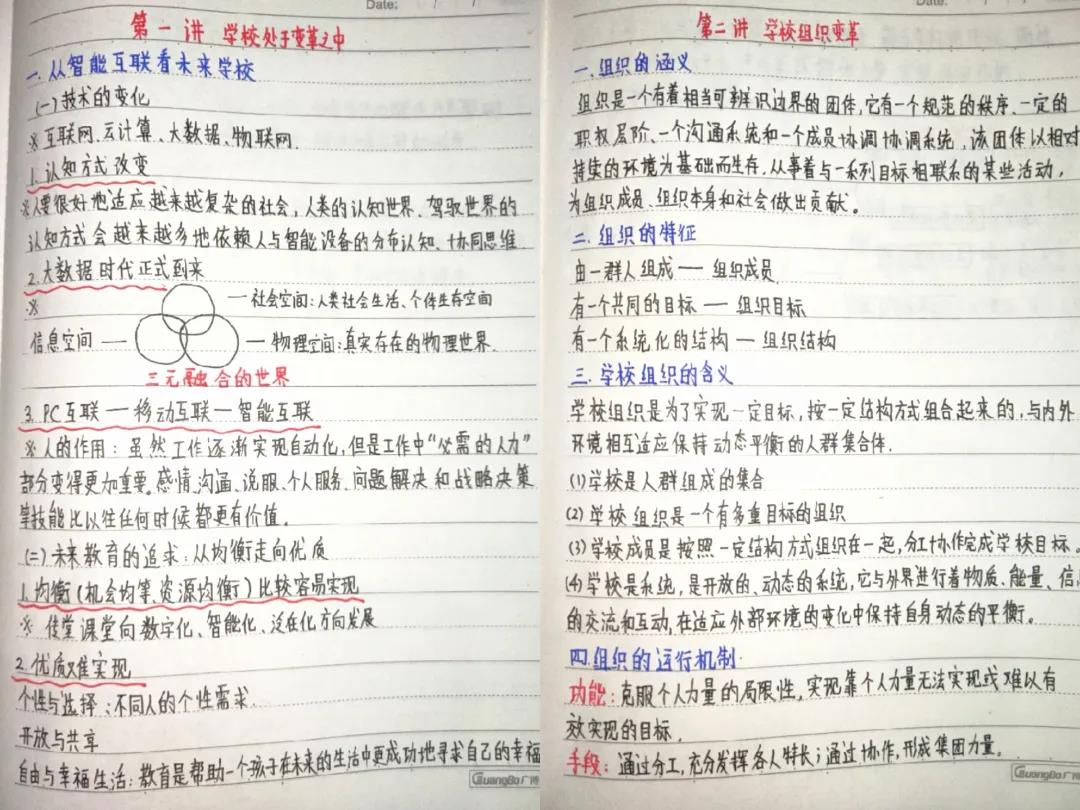 Date: / /
第一讲 学校处于变革之中
一、从智能互联看未来学校
(一)技术的变化
※ 互联网、云计算、大数据、物联网.
1.认知方式改变
※人要很好地适应越来越复杂的社会,人类的认知世界、驾驭世界的
认知方式会越来越多地依赖人与智能设备的分布认知、协同思维
2.大数据时代正式到来
※
— 社会空间:人类社会生活、个体生存空间
信息空间 —
— 物理空间:真实存在的物理世界.
三元融合的世界
3. PC互联 — 移动互联 — 智能互联
※ 人的作用:虽然工作逐渐实现自动化,但是工作中“必需的人力”
部分变得更加重要。感情、沟通、说服、个人服务、问题解决和战略决策
等技能比以往任何时候都更有价值。
(二)未来教育的追求:从均衡走向优质
1.均衡(机会均等、资源均衡)比较容易实现
※ 传堂课堂向数字化、智能化、泛在化方向发展
2.优质难实现
个性与选择:不同人的个性需求.
开放与共享
自由与幸福生活:教育是帮助一个孩子在未来的生活中更成功地寻求自己的幸福
GuangBo广博
Date: / /
第二讲 学校组织变革
一.组织的涵义
组织是一个有着相当可辨识边界的团体,它有一个规范的秩序、一定的
职权层阶、一个沟通系统和一个成员协调协调系统,该团体以相对
持续的环境为基础而生存.从事着与一系列目标相联系的某些活动,
为组织成员、组织本身和社会做出贡献。
二.组织的特征
由一群人组成 — 组织成员
有一个共同的目标 — 组织目标
有一个系统化的结构 — 组织结构
三.学校组织的含义
学校组织是为了实现一定目标,按一定结构方式组合起来的,与内外
环境相互适应保持动态平衡的人群集合体.
(1)学校是人群组成的集合
(2)学校组织是一个有多重目标的组织
(3)学校成员是按照一定结构方式组织在一起,分工协作完成学校目标。
(4)学校是系统,是开放的、动态的系统,它与外界进行着物质、能量、信息
的交流和互动,在适应外部环境的变化中保持自身动态的平衡。
四.组织的运行机制
功能:克服个人力量的局限性,实现靠个人力量无法实现或难以有
效实现的目标.
手段:通过分工,充分发挥各人特长;通过协作,形成集团力量。
GuangBo广博